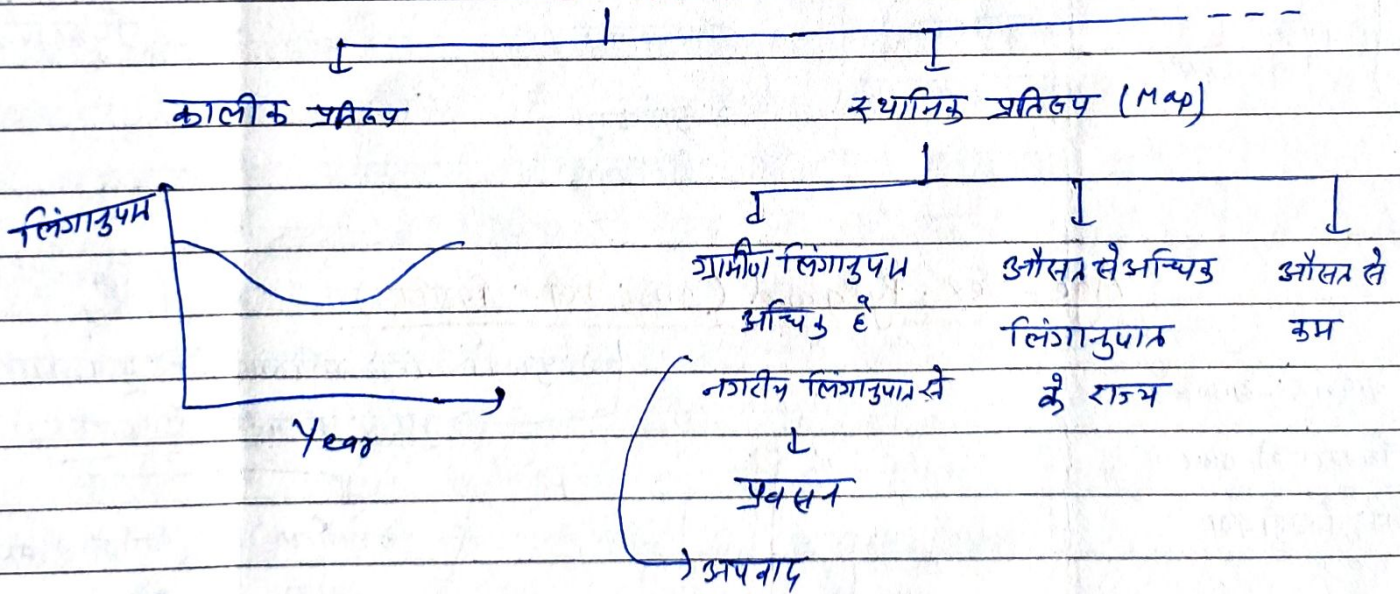 कालीक प्रतिरूप
स्थानिक प्रतिरूप (Map)
लिंगानुपात
Year
ग्रामीण लिंगानुपात
अधिक है
नगरीय लिंगानुपात से
प्रवसन
अपवाद
औसत से अधिक
लिंगानुपात
के राज्य
औसत से
कम